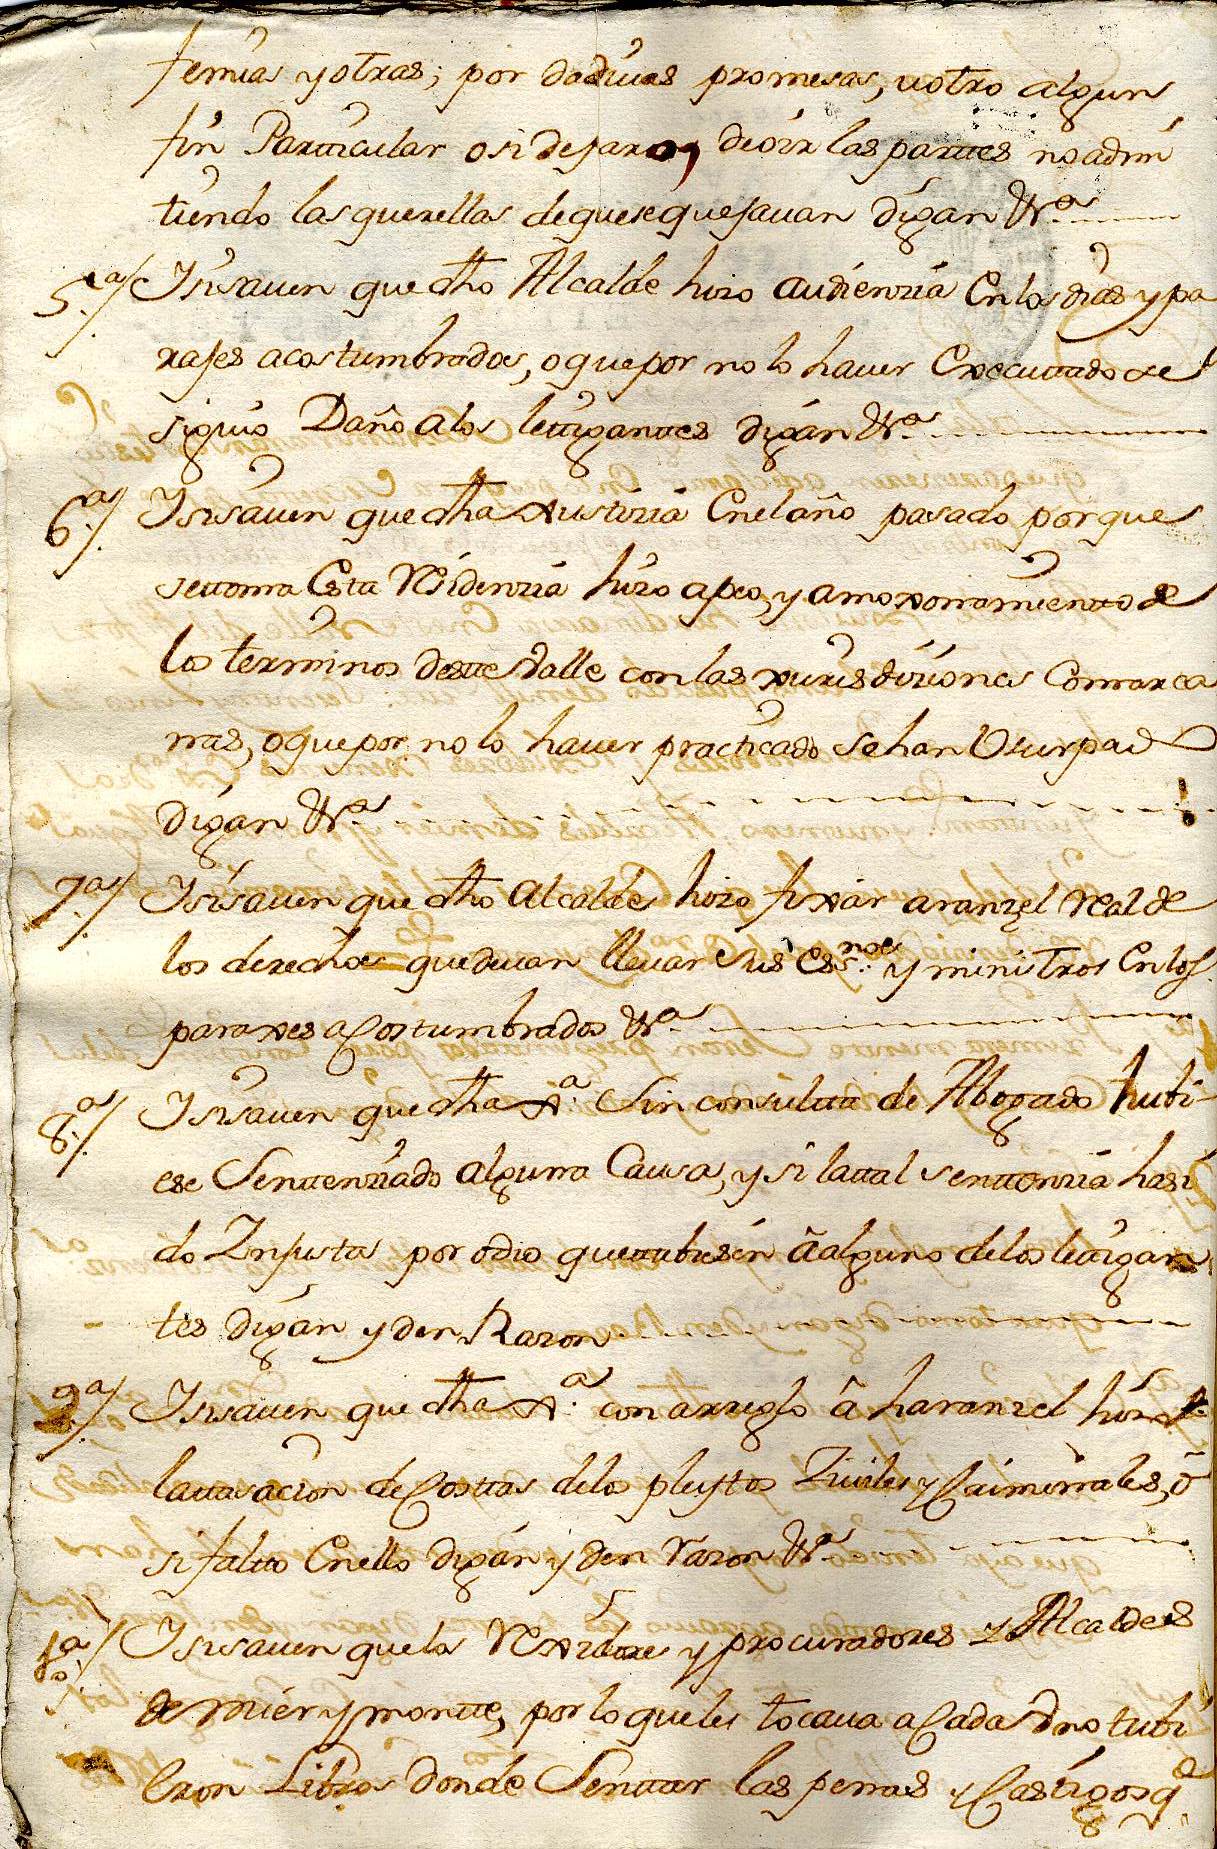 femias y otras; por dadivas promesas, u otro algun
fin Particular o si dejaron de oir las parttes no admi
tiendo las querellas de que se quejavan digan &ª
5.ª/ Y si saven que dho Alcalde hizo audienzia En los dias y pa
rajes acostumbrados, o que por no lo haver Executtado se
siguio Daño a los lettiganttes digan &ª
6.ª/ Y si saven que dha Xustizia En el año pasado porque
se ttoma Esta Residenzia hizo apeo, y amoxonamientto de
los terminos deste Valle con las xurisdiziones Comarca
nas, o que por no lo haver practicado se han Usurpado
digan &ª
7.ª/ Y si saven que dho Alcalde hizo fixar aranzel Real de
los derechos que devan llevar sus Essnos. y ministros En los
paraxes acostumbrados &ª
8.ª/ Y si saven que dha Xª. Sin consultta de Abogado hubi-
ese Senttenziado alguna Causa, y si la ttal senttenzia ha si
do Injusta por odio que ttubiesen â alguno de los letigan
tes digan y den Razon
9.ª/ Y si saven que dha Xª. con arreglo â haranzel hizo
la ttasacion de Costtas de los pleyttos Ziviles y Criminales, ô
si faltto En ello digan y den razon &ª
10.ª/ Y si saven que los Rexidores y procuradores y Alcaldes
de mier y montte, por lo que les tocava a Cada Vno tubi
eron Libros donde Senttar las penas y Castigos q.